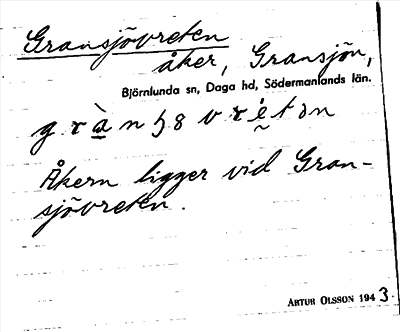 Gransjövreten
åker, Gransjön,
Björnlunda sn, Daga hd, Södermanlands län.
Åkern ligger vid Gran-
sjövreten.
ARTUR OLSSON 1943.